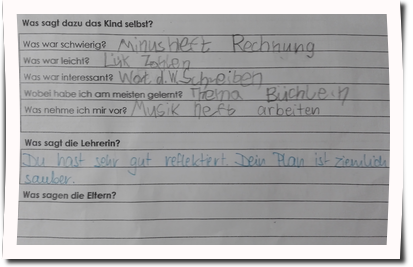 Was sagt dazu das Kind selbst?
Was war schwierig? Minusheft Rechnung
Was war leicht? Lük Zahlen
Was war interessant? Wort. d. W. Schreiben
Wobei habe ich am meisten gelernt? Thema Büchlein
Was nehme ich mir vor? Musik heft arbeiten
Was sagt die Lehrerin?
Du hast sehr gut reflektiert. Dein Plan ist ziemlich
sauber.
Was sagen die Eltern?